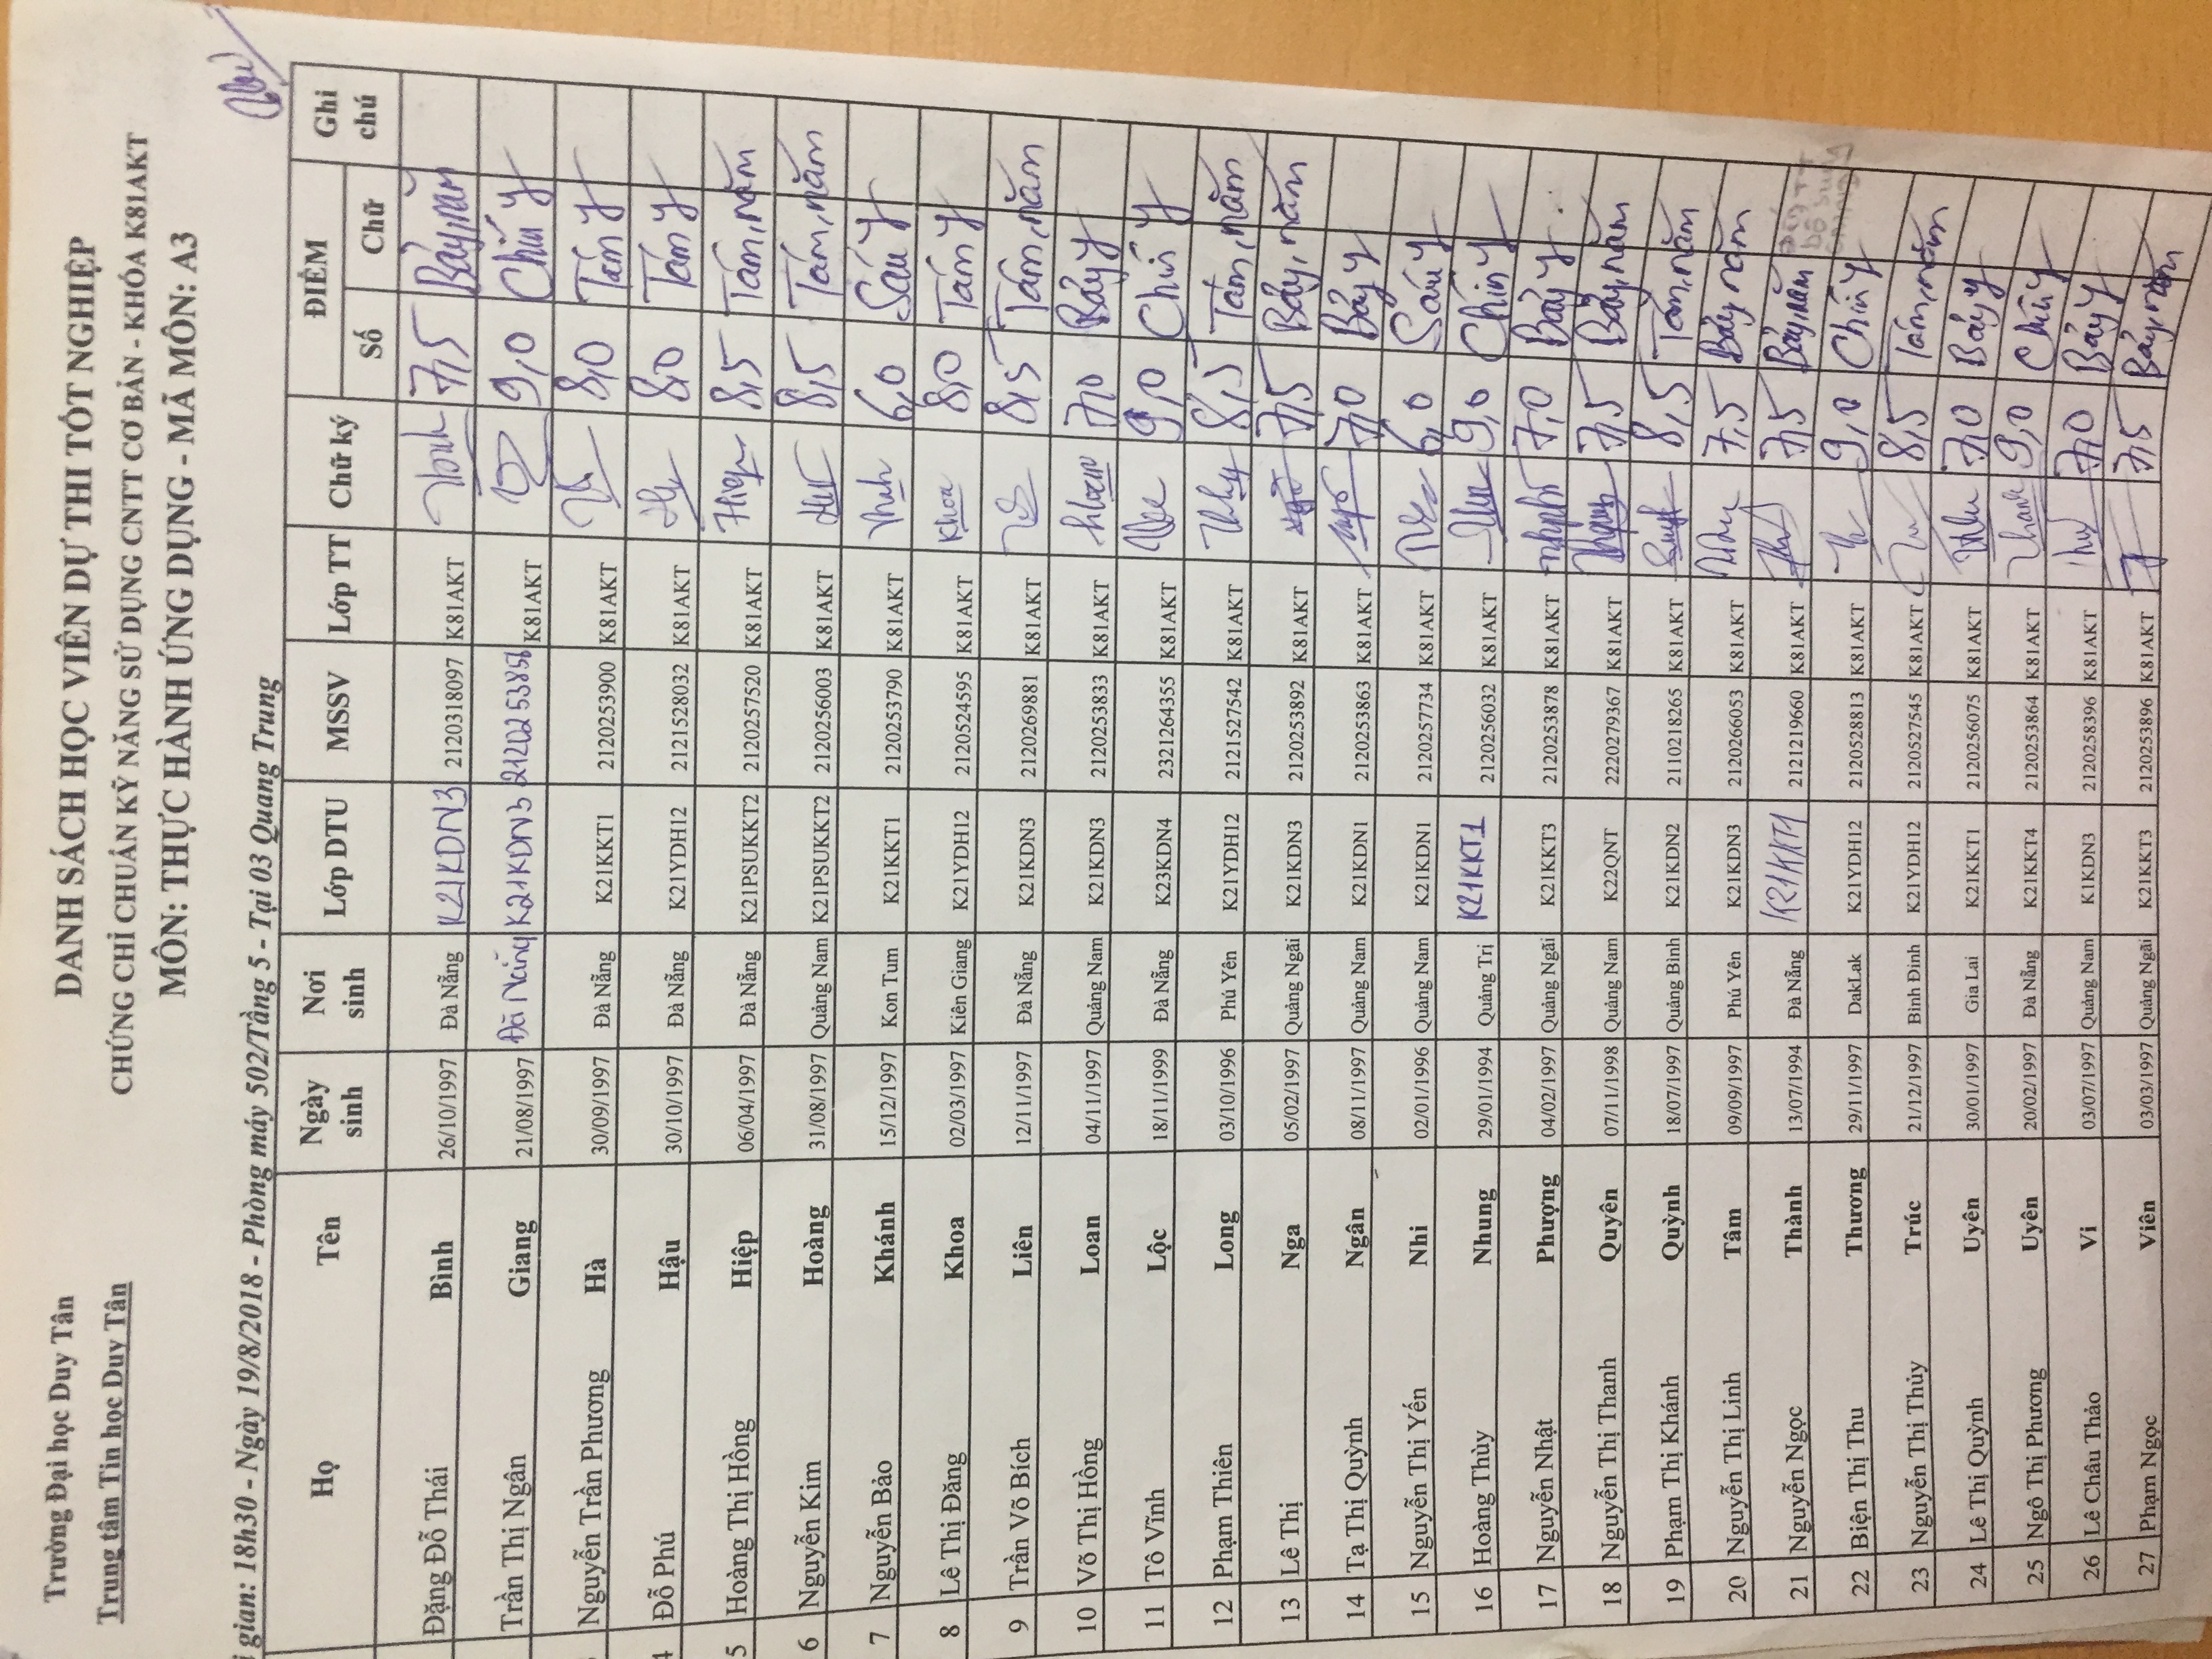 Trường Đại học Duy Tân
Trung tâm Tin học Duy Tân
DANH SÁCH HỌC VIÊN DỰ THI TỐT NGHIỆP
CHỨNG CHỈ CHUẨN KỸ NĂNG SỬ DỤNG CNTT CƠ BẢN - KHÓA K81AKT
MÔN: THỰC HÀNH ỨNG DỤNG - MÃ MÔN: A3
gian: 18h30 - Ngày 19/8/2018 - Phòng máy 502/Tầng 5 - Tại 03 Quang Trung
Họ Tên Ngày sinh Nơi sinh Lớp DTU MSSV Lớp TT Chữ ký ĐIỂM Ghi chú
Số Chữ
Đặng Đỗ Thái Bình 26/10/1997 Đà Nẵng K21KDN3 2120318097 K81AKT 7,5 Bảy, năm
Trần Thị Ngân Giang 21/08/1997 Đà Nẵng K21KDN3 2120253856 K81AKT 9,0 Chín y
Nguyễn Trần Phương Hà 30/09/1997 Đà Nẵng K21KKT1 2120253900 K81AKT 8,0 Tám y
4 Đỗ Phú Hậu 30/10/1997 Đà Nẵng K21YDH12 2121528032 K81AKT 8,0 Tám y
5 Hoàng Thị Hồng Hiệp 06/04/1997 Đà Nẵng K21PSUKKT2 2120257520 K81AKT Hiệp 8,5 Tám, năm
6 Nguyễn Kim Hoàng 31/08/1997 Quảng Nam K21PSUKKT2 2120256003 K81AKT 8,5 Tám, năm
7 Nguyễn Bảo Khánh 15/12/1997 Kon Tum K21KKT1 2120253790 K81AKT 6,0 Sáu y
8 Lê Thị Đăng Khoa 02/03/1997 Kiên Giang K21YDH12 2120524595 K81AKT Khoa 8,0 Tám y
9 Trần Võ Bích Liên 12/11/1997 Đà Nẵng K21KDN3 2120269881 K81AKT 8,5 Tám, năm
10 Võ Thị Hồng Loan 04/11/1997 Quảng Nam K21KDN3 2120253833 K81AKT 7,0 Bảy y
11 Tô Vĩnh Lộc 18/11/1999 Đà Nẵng K23KDN4 2321264355 K81AKT 9,0 Chín y
12 Phạm Thiên Long 03/10/1996 Phú Yên K21YDH12 2121527542 K81AKT 8,5 Tám, năm
13 Lê Thị Nga 05/02/1997 Quảng Ngãi K21KDN3 2120253892 K81AKT 7,5 Bảy, năm
14 Tạ Thị Quỳnh Ngân 08/11/1997 Quảng Nam K21KDN1 2120253863 K81AKT 7,0 Bảy y
15 Nguyễn Thị Yến Nhi 02/01/1996 Quảng Nam K21KDN1 2120257734 K81AKT 6,0 Sáu y
16 Hoàng Thùy Nhung 29/01/1994 Quảng Trị K21KKT1 2120256032 K81AKT 9,0 Chín y
17 Nguyễn Nhật Phượng 04/02/1997 Quảng Ngãi K21KKT3 2120253878 K81AKT 7,0 Bảy y
18 Nguyễn Thị Thanh Quyên 07/11/1998 Quảng Nam K22QNT 2220279367 K81AKT 7,5 Bảy, năm
19 Phạm Thị Khánh Quỳnh 18/07/1997 Quảng Bình K21KDN2 2110218265 K81AKT 8,5 Tám, năm
20 Nguyễn Thị Linh Tâm 09/09/1997 Phú Yên K21KDN3 2120266053 K81AKT 7,5 Bảy năm
21 Nguyễn Ngọc Thành 13/07/1994 Đà Nẵng K21KKT1 2121219660 K81AKT 7,5 Bảy, năm
22 Biện Thị Thu Thương 29/11/1997 DakLak K21YDH12 2120528813 K81AKT 9,0 Chín y
23 Nguyễn Thị Thùy Trúc 21/12/1997 Bình Đình K21YDH12 2120527545 K81AKT 8,5 Tám, năm
24 Lê Thị Quỳnh Uyên 30/01/1997 Gia Lai K21KKT1 2120256075 K81AKT 7,0 Bảy y
25 Ngô Thị Phương Uyên 20/02/1997 Đà Nẵng K21KKT4 2120253864 K81AKT 9,0 Chín y
26 Lê Châu Thảo Vi 03/07/1997 Quảng Nam K1KDN3 2120258396 K81AKT 7,0 Bảy y
27 Phạm Ngọc Viên 03/03/1997 Quảng Ngãi K21KKT3 2120253896 K81AKT 7,5 Bảy, năm